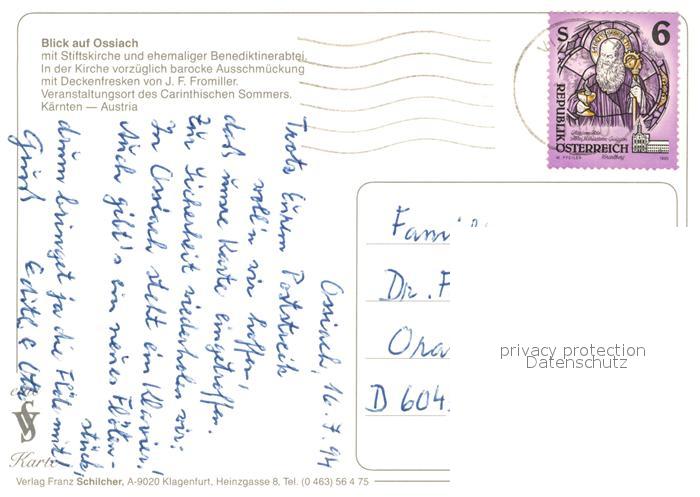 Blick auf Ossiach
mit Stiftskirche und ehemaliger Benediktinerabtei.
In der Kirche vorzüglich barocke Ausschmückung
mit Deckenfresken von J. F. Fromiller.
Veranstaltungsort des Carinthischen Sommers.
Kärnten — Austria
S 6
REPUBLIK
ÖSTERREICH
Ossiach, 16.7.94
Trotz Eurem Poststreik
woll'n wir hoffen,
daß unsre Karte eingetroffen.
Zur Sicherheit wiederholen wir:
In Ossiach steht ein Klavier!
Auch gibt's ein neues Flöten-
stück,
drum bringet ja die Flöte mit!
Gruß Edith &
Dr. F
D 604
privacy protection
Datenschutz
Karte
Verlag Franz Schilcher, A-9020 Klagenfurt, Heinzgasse 8, Tel. (0 463) 56 4 75